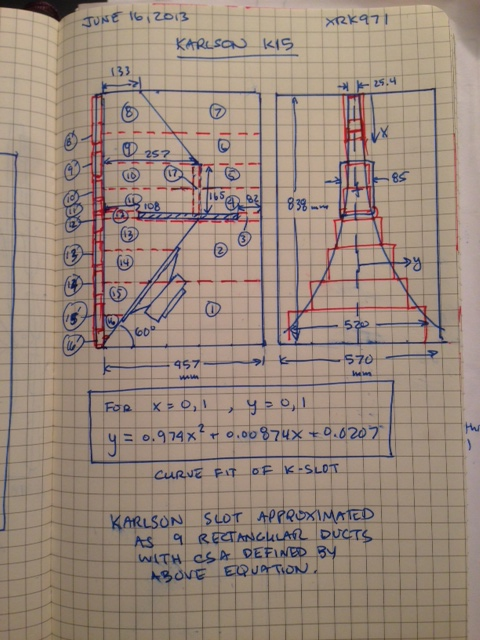 JUNE 16, 2013
XRK971
KARLSON K15
133
25.4
8
7
8
X
9
6
9
257
10
17
5
10
165
85
11
11
108
4
82
838 mm
12
12
3
13
13
2
y
14
14
15
1
15
16
520
16
60°
457
mm
570
mm
FOR X=0,1 , y=0,1
y = 0.974x² + 0.00874x + 0.0207
CURVE FIT OF K-SLOT
KARLSON SLOT APPROXIMATED
AS 9 RECTANGULAR DUCTS
WITH CSA DEFINED BY
ABOVE EQUATION.